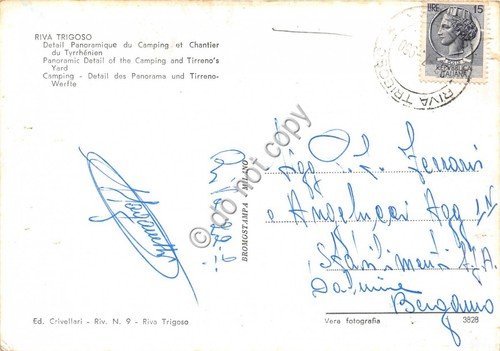 RIVA TRIGOSO
Detail Panoramique du Camping et Chantier
du Tyrrhénien
Panoramic Detail of the Camping and Tirreno's
Yard
Camping - Detail des Panorama und Tirreno-
Werfte
LIRE 15
RIVA TRIGOSO
do not copy
BROMOSTAMPA MILANO
Sigg
Ferraris
e Angelucci Agg
Stabilimenti
Dalmine
Bergamo
Ed. Crivellari - Riv. N. 9 - Riva Trigoso
Vera fotografia
3828